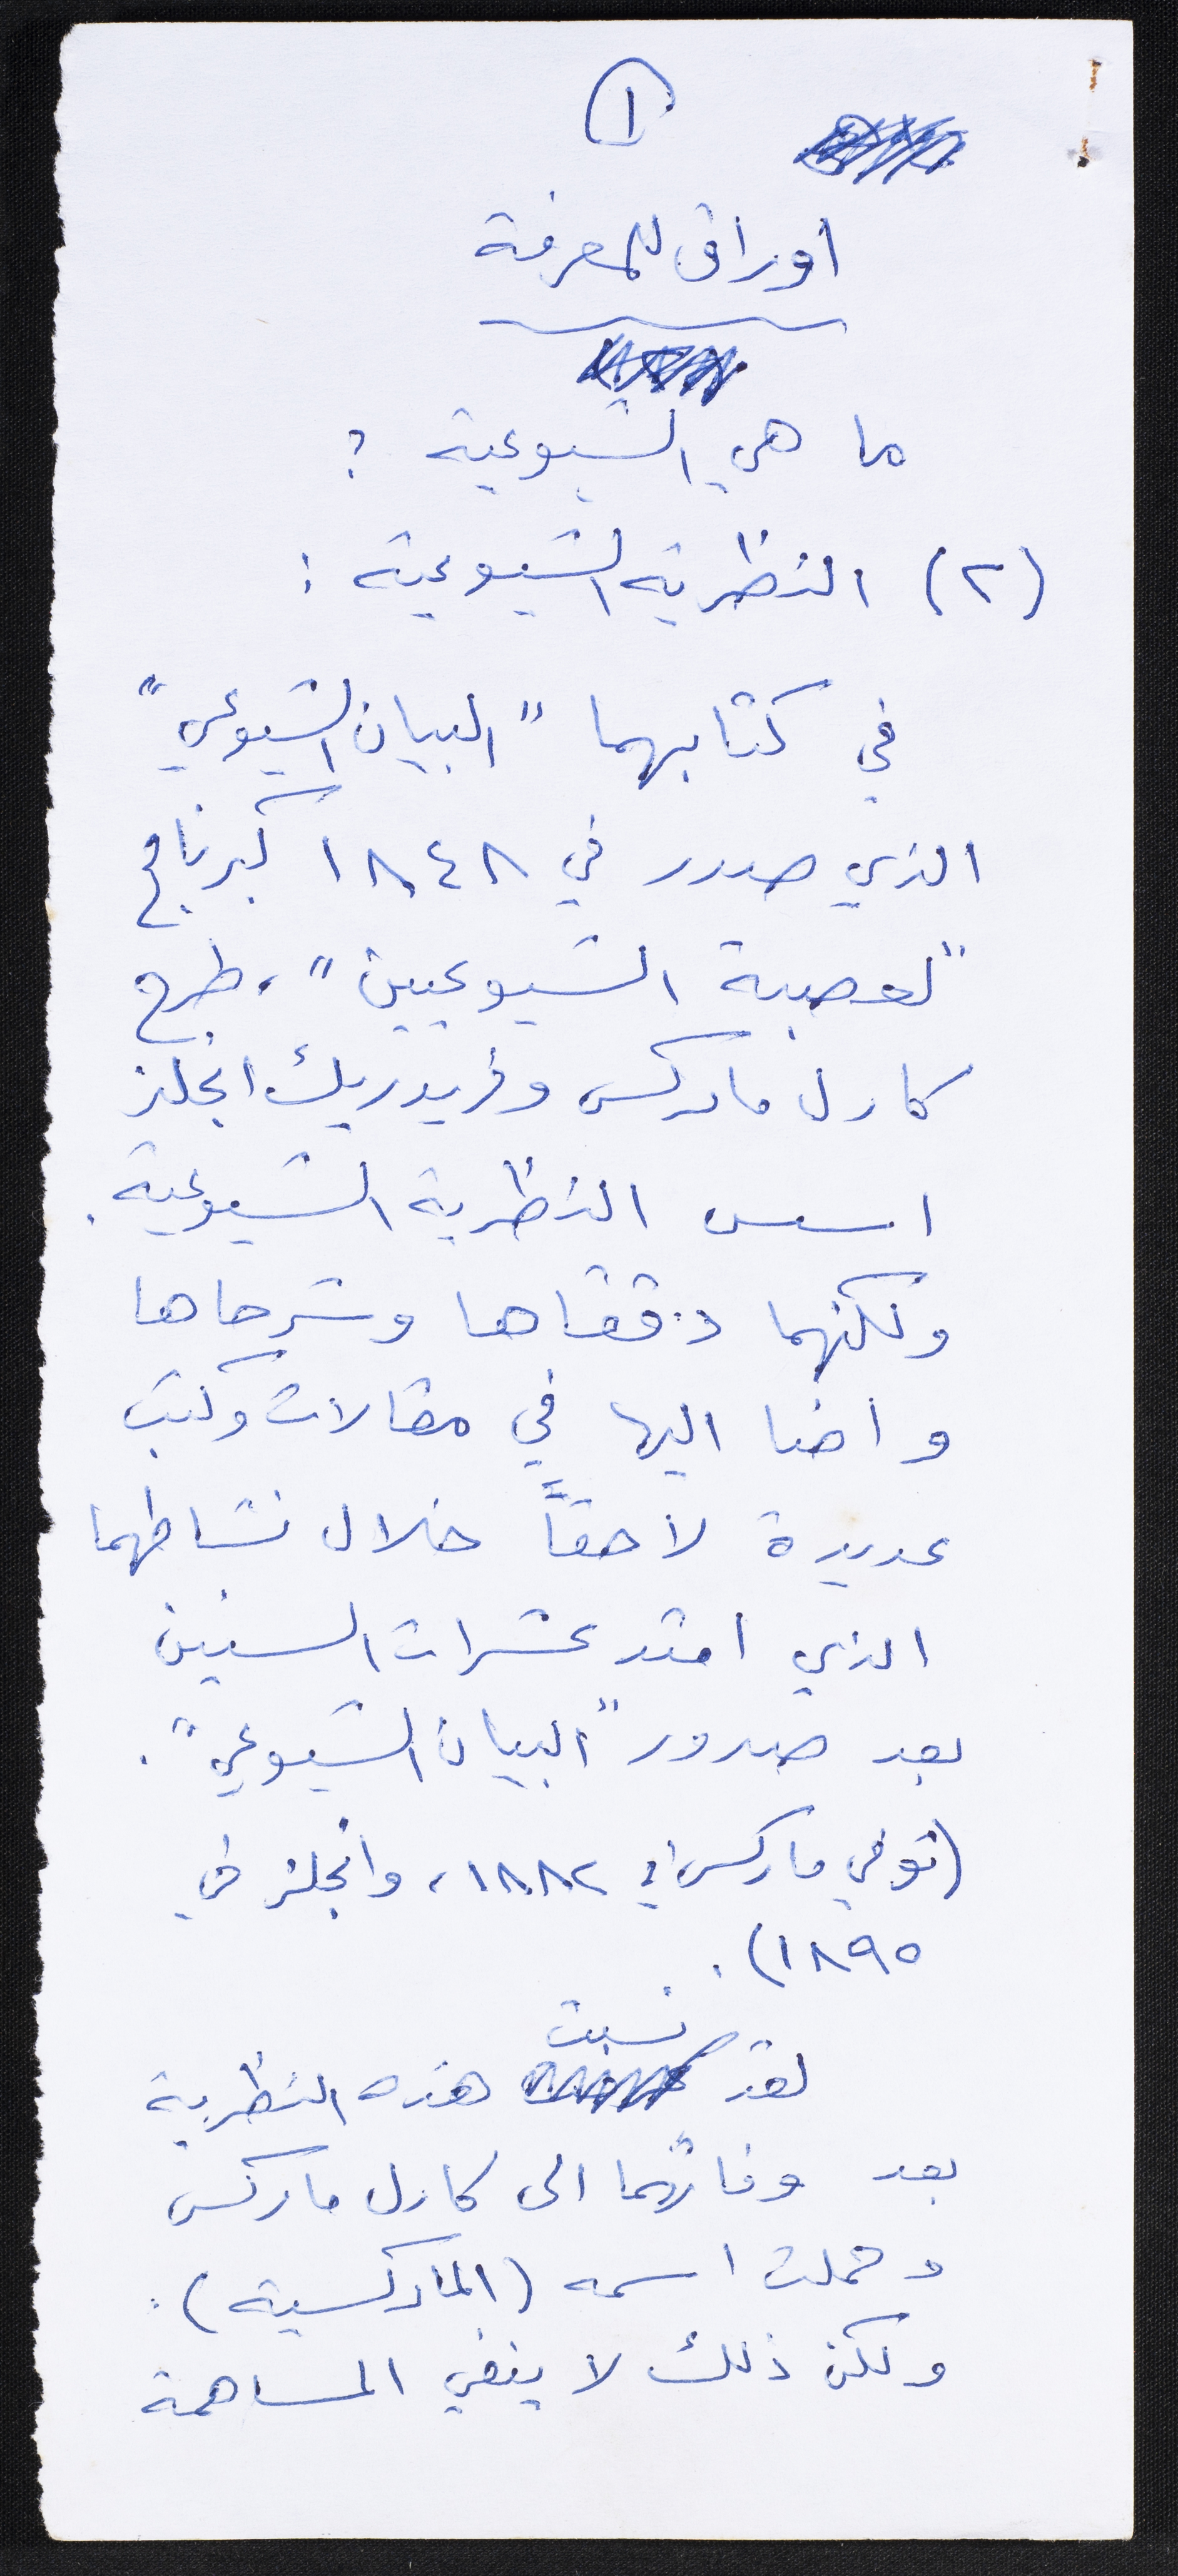 ١
اوراق للمعرفة
ما هي الشيوعية ؟
(٢) النظرية الشيوعية :
في كتابهما "البيان الشيوعي"
الذي صدر في ١٨٤٨ كبرنامج
"لعصبة الشيوعيين"، طرح
كارل ماركس وفريدريك انجلز
اسس النظرية الشيوعية.
ولكنهما دققاها وشرحاها
واضا اليها في مقالات وكتب
عديدة لاحقاً خلال نشاطهما
الذي امتد عشرات السنين
بعد صدور "البيان الشيوعي".
(توفي ماركس في ١٨٨٢، وانجلز في
١٨٩٥).
لقد نسبت هذه النظرية
بعد وفاتهما الى كارل ماركس
وحملت اسمه (الماركسية).
ولكن ذلك لا ينفي المساهمة